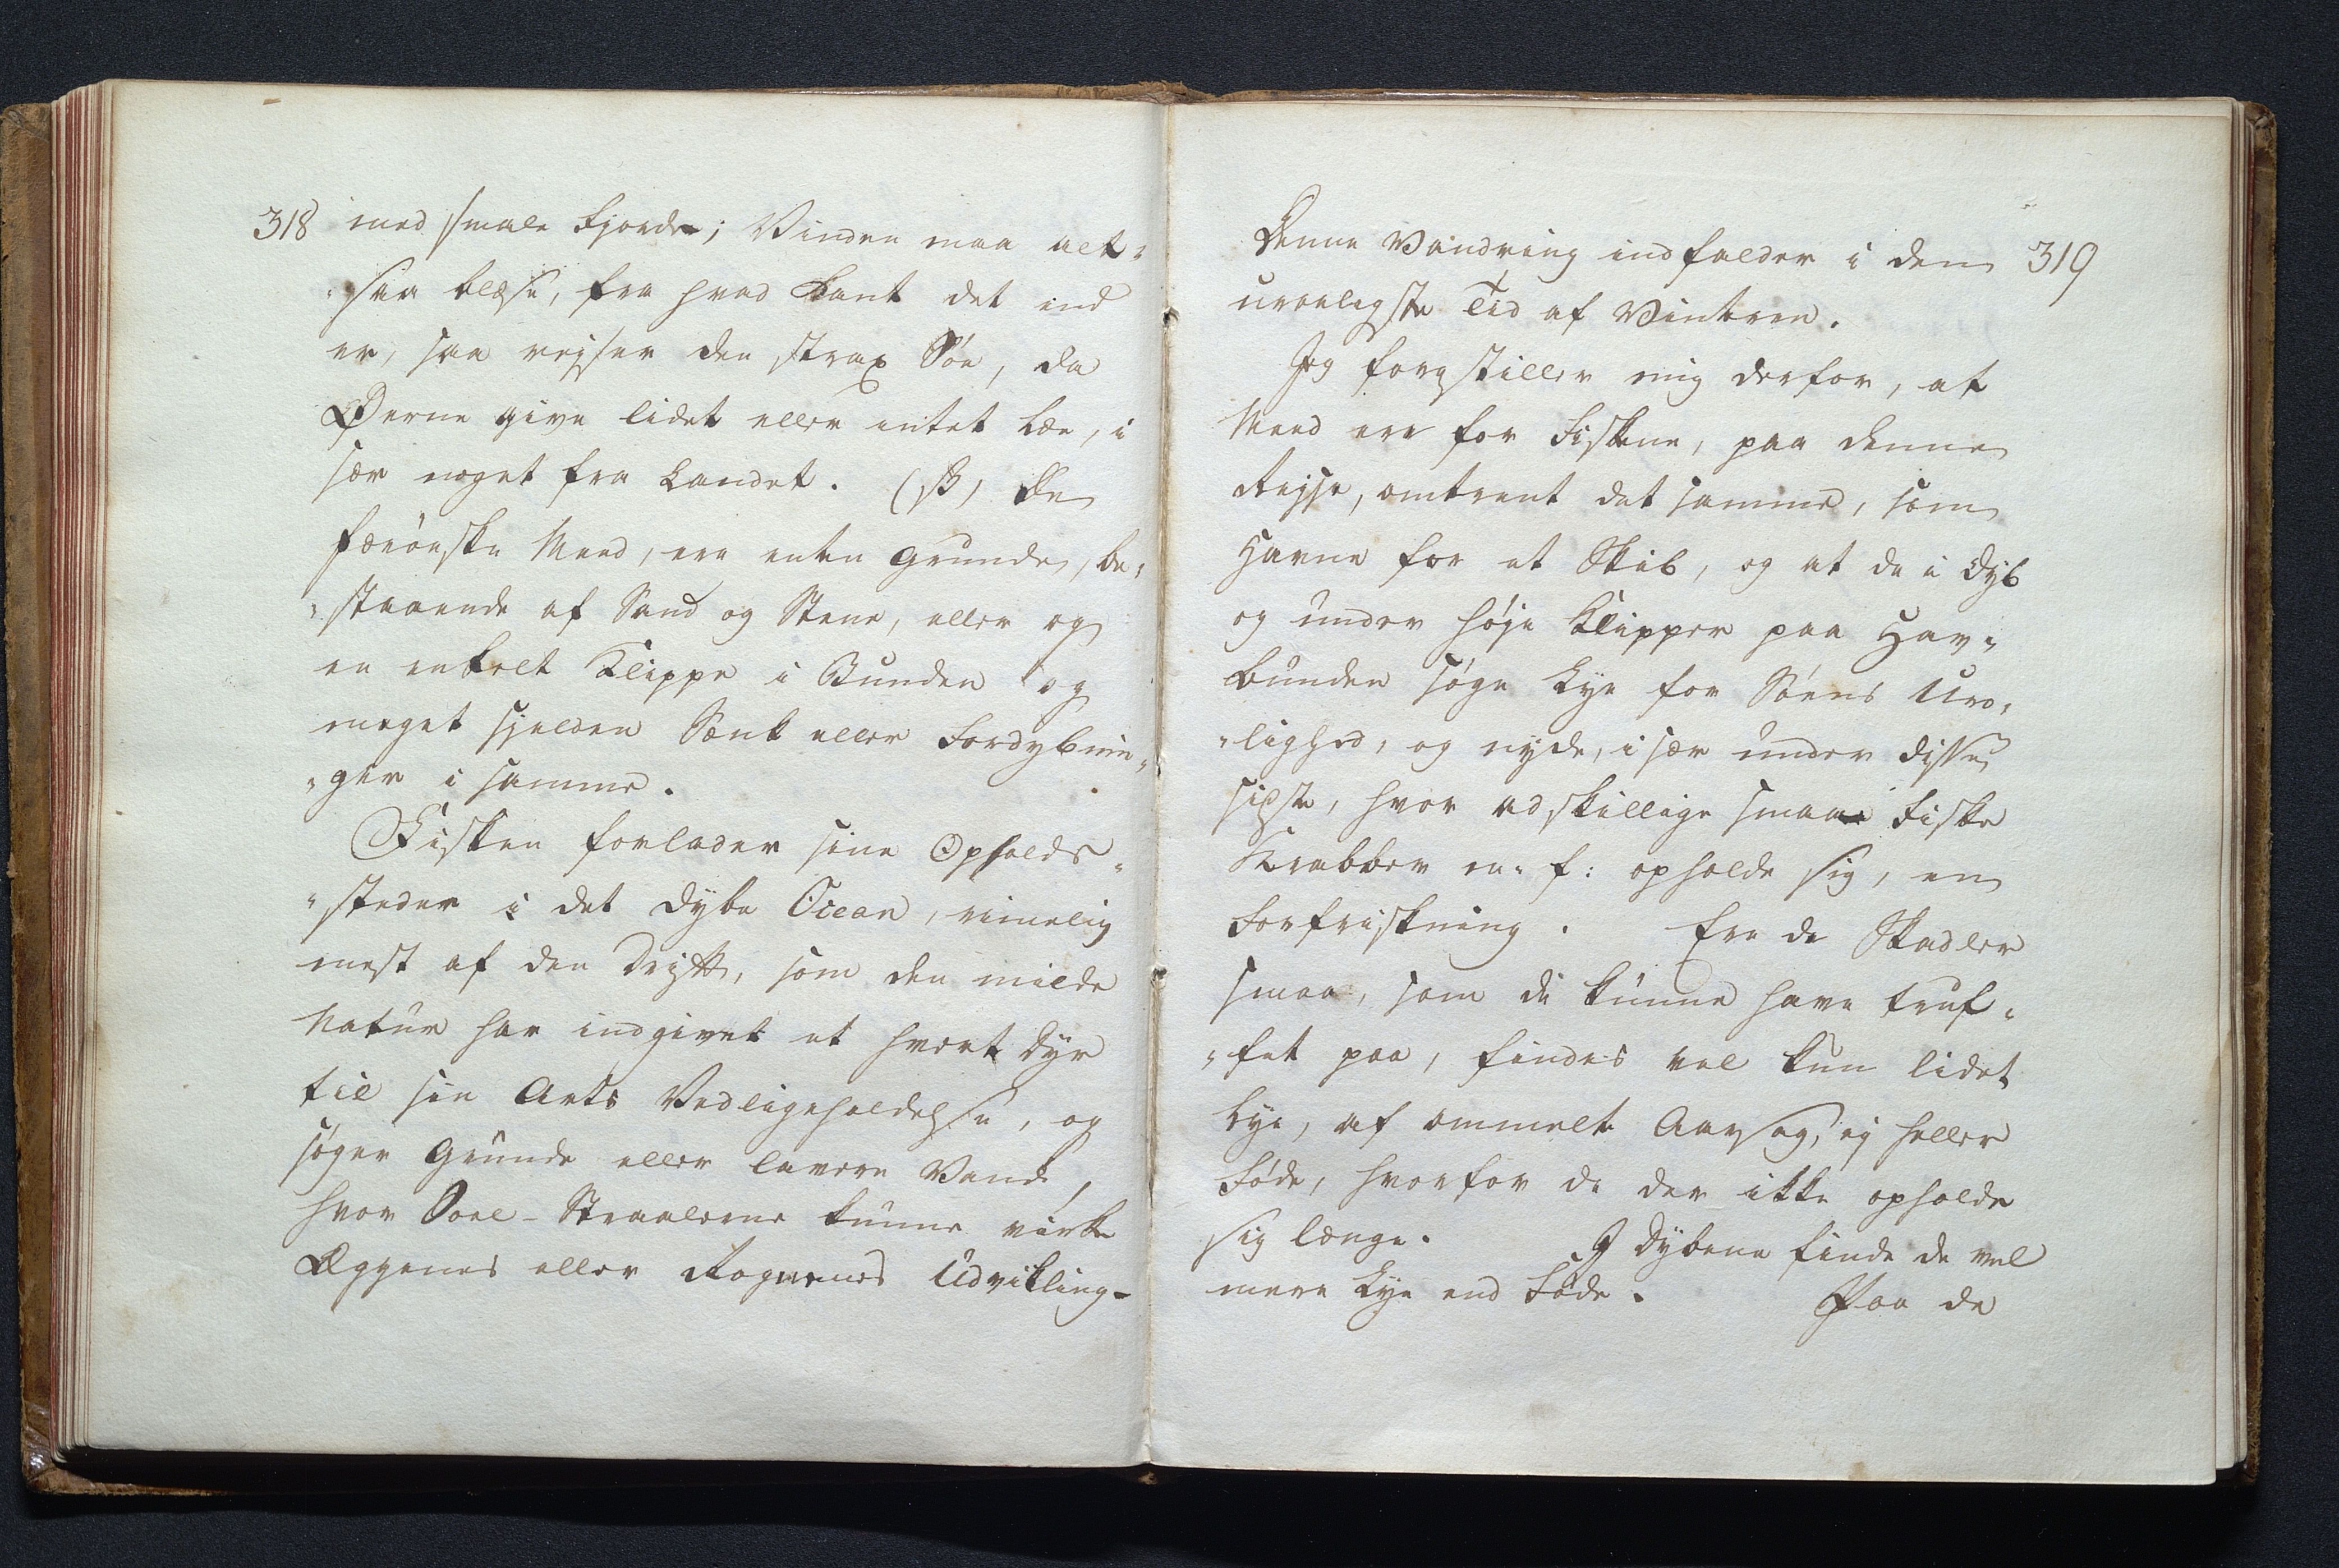 318 med smale Fjorde; Vinden maa alt-
"saa blæse, fra hvad Kant det end
er, saa rejser den strax Søe, da
Øerne give lidet eller intet Læe, i
sær noget fra Landet. (β) De
færöeske Meed, ere enten Grunde, be-
"staaende af Sand og Stene, eller og
en enkelt Klippe i Bunden og
meget sjelden Sænk eller Fordybnin-
"ger i samme.
Fisken forlader sine Opholds-
"steder i det dybe Ocean, rimelig
mest af den Drift, som den milde
Natur har indgivet et hvert Dyr
til sin Arts Vedligeholdelse, og
søger Grunde eller lavere Vand,
hvor Soel-Straalerne kunne virke
Æggenes eller Rognenes Udvikling-
Denne Vandring indfalder i den 319
uroeligste Tid af Vinteren.
Jeg foregstiller mig derfor, at
Meed ere for Fiskene, paa denne
Rejse, omtrent det samme, som
Havne for et Skib, og at de i Dyb
og under høje Klipper paa Hav-
bunden søge Lye for Søens Uro-
"lighed, og nyde, i sær under disse
sidste, hvor adskillige smaae Fiske
Krabber m. f: opholde sig, en
Forfriskning. Ere de Skadler
smaa, som de kunne have truf-
"fet paa, findes vel kun lidet
Lye, af ommelte Aarsag, ej heller
Føde, hvorfor de der ikke opholde
sig længe. I Dybene finde de vel
mere Lye end Føde. Paa de